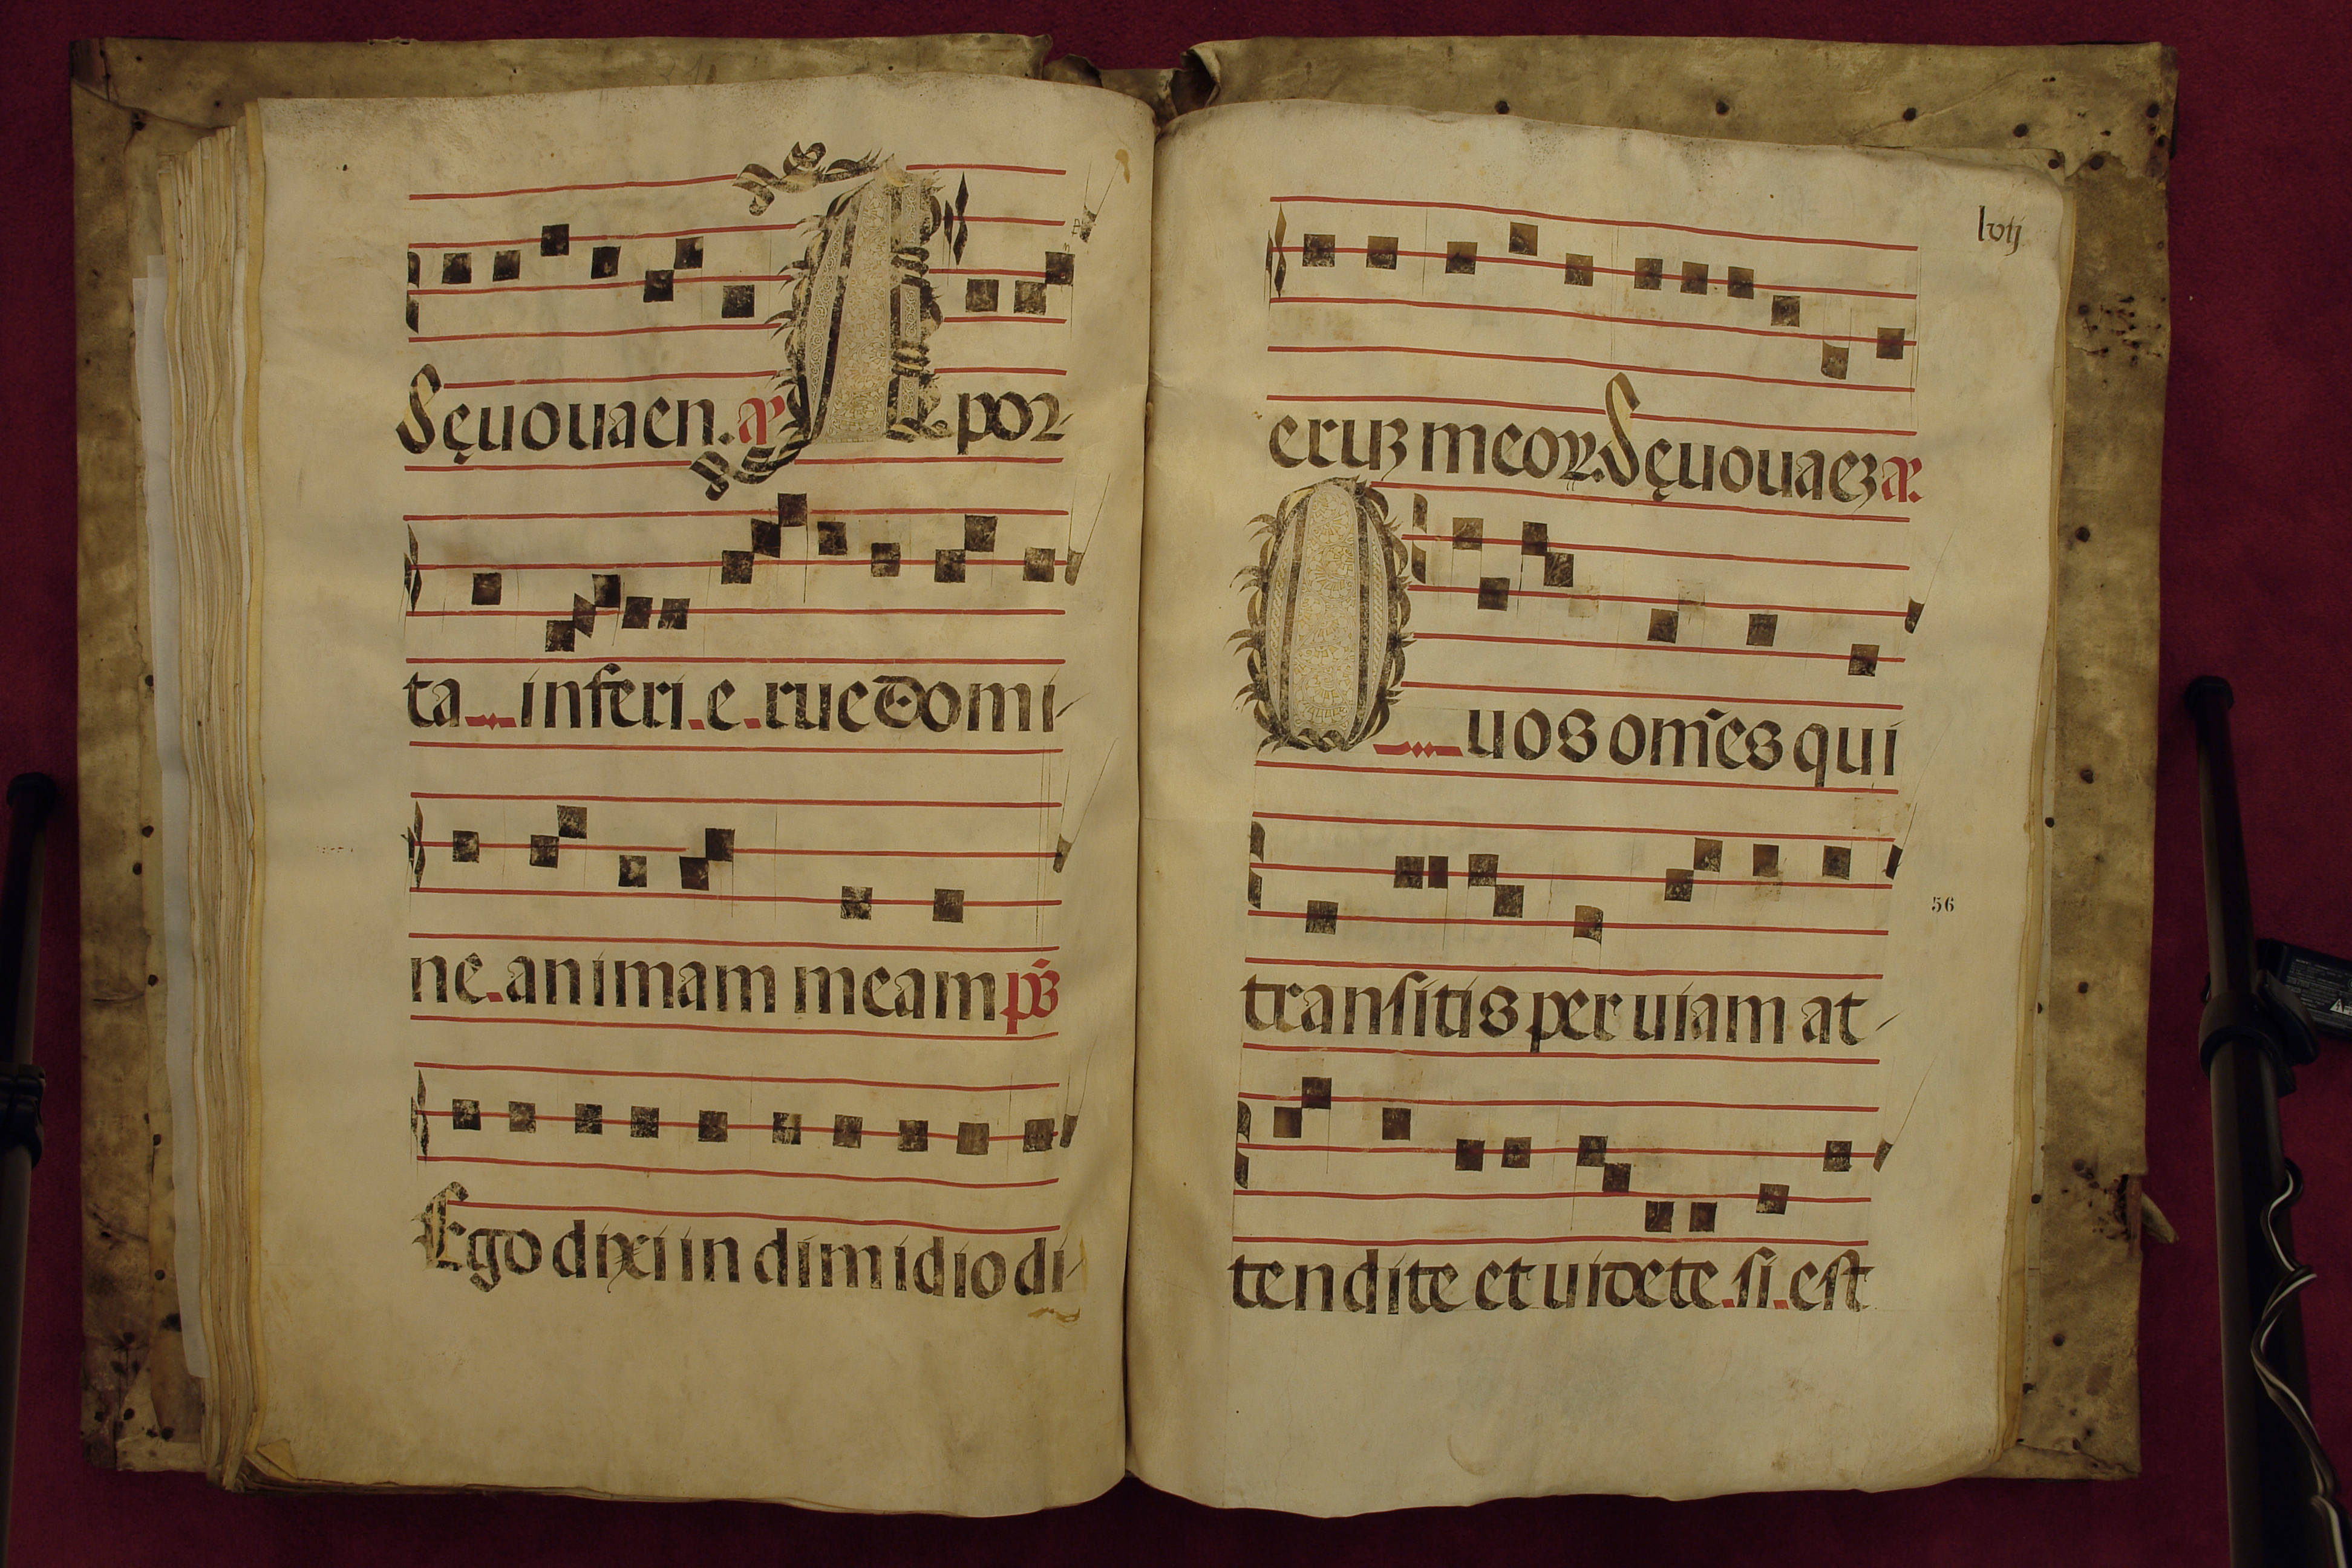 Seuouaen. a A por-
ta inferi. e. rue domi-
ne. animam meam ps
Ego dixi in dimidio di-
lvij
erum meorum. Seuouaez a.
O uos om̃es qui
56
transitis per uiam at-
tendite et uidete. si. est